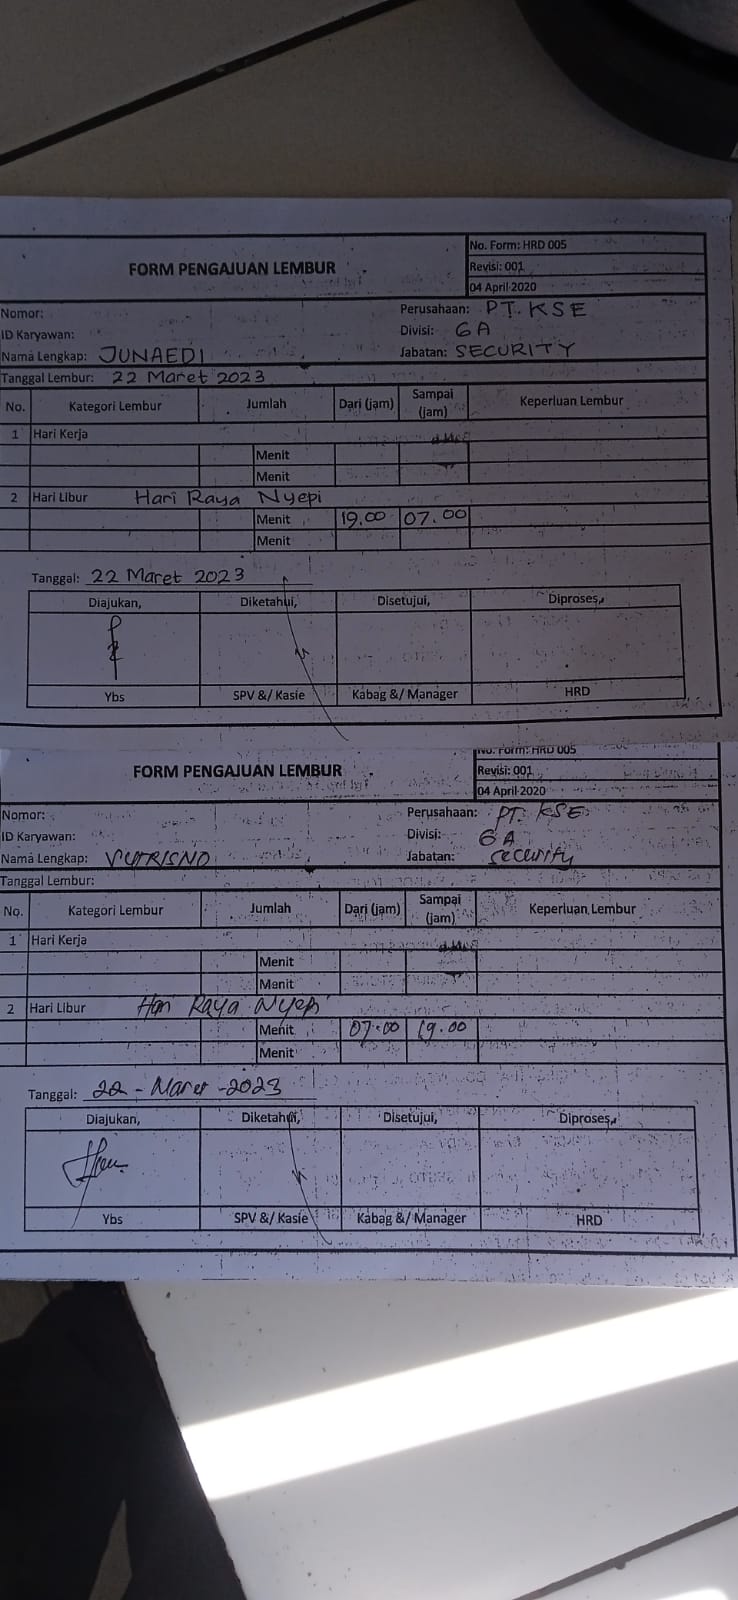 No. Form: HRD 005
FORM PENGAJUAN LEMBUR
Revisi: 001
04 April 2020
Nomor:
Perusahaan: PT. KSE
ID Karyawan:
Divisi: GA
Nama Lengkap: JUNAEDI
Jabatan: SECURITY
Tanggal Lembur: 22 Maret 2023
No. Kategori Lembur Jumlah Dari (jam) Sampai (jam) Keperluan Lembur
1 Hari Kerja
Menit
Menit
2 Hari Libur Hari Raya Nyepi
Menit 19.00 07.00
Menit
Tanggal: 22 Maret 2023
Diajukan, Diketahui, Disetujui, Diproses,
Ybs SPV &/ Kasie Kabag &/ Manager HRD
No. Form: HRD 005
FORM PENGAJUAN LEMBUR
Revisi: 001
04 April 2020
Nomor:
Perusahaan: PT. KSE
ID Karyawan:
Divisi: GA
Nama Lengkap:
Jabatan: Security
Tanggal Lembur:
No. Kategori Lembur Jumlah Dari (jam) Sampai (jam) Keperluan Lembur
1 Hari Kerja
Menit
Menit
2 Hari Libur Hari Raya Nyepi
Menit 07.00 19.00
Menit
Tanggal: 22 - Maret - 2023
Diajukan, Diketahui, Disetujui, Diproses,
Ybs SPV &/ Kasie Kabag &/ Manager HRD